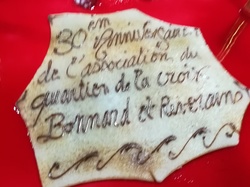 30 èm Anniversaire
de l'association du
quartier de la croix
Bonnard et Riversains